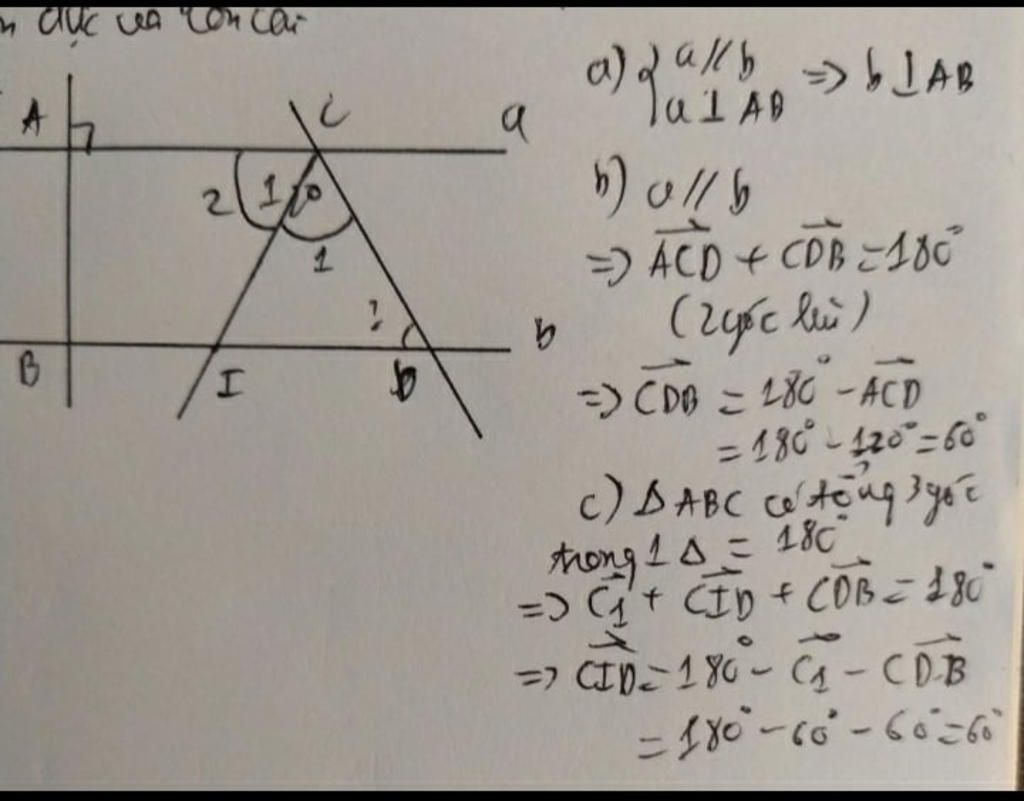 dục của con cái
A
C
a
2
120°
1
?
B
I
D
b
a) { a // b
a ⊥ AB => b ⊥ AB
b) a // b
=> ACD + CDB = 180°
(2 góc kù)
=> CDB = 180° - ACD
= 180° - 120° = 60°
c) Δ ABC có tổng 3 góc
trong 1 Δ = 180°
=> C1 + CID + CDB = 180°
=> CID = 180° - C1 - CDB
= 180° - 60° - 60° = 60°